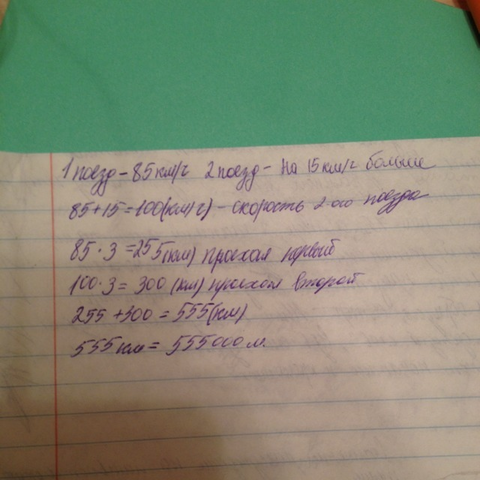 1 поезд - 85 км/ч 2 поезд - на 15 км/ч больше
85+15=100(км/ч) - скорость 2-ого поезда
85 · 3 = 255(км) проехал первый
100 · 3 = 300 (км) проехал второй
255 + 300 = 555(км)
555 км = 555000 м